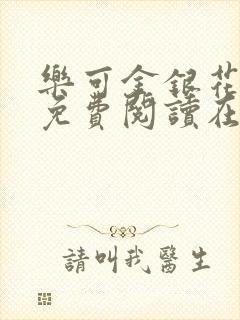 樂可金銀花
免費閱讀在
請叫我醫生